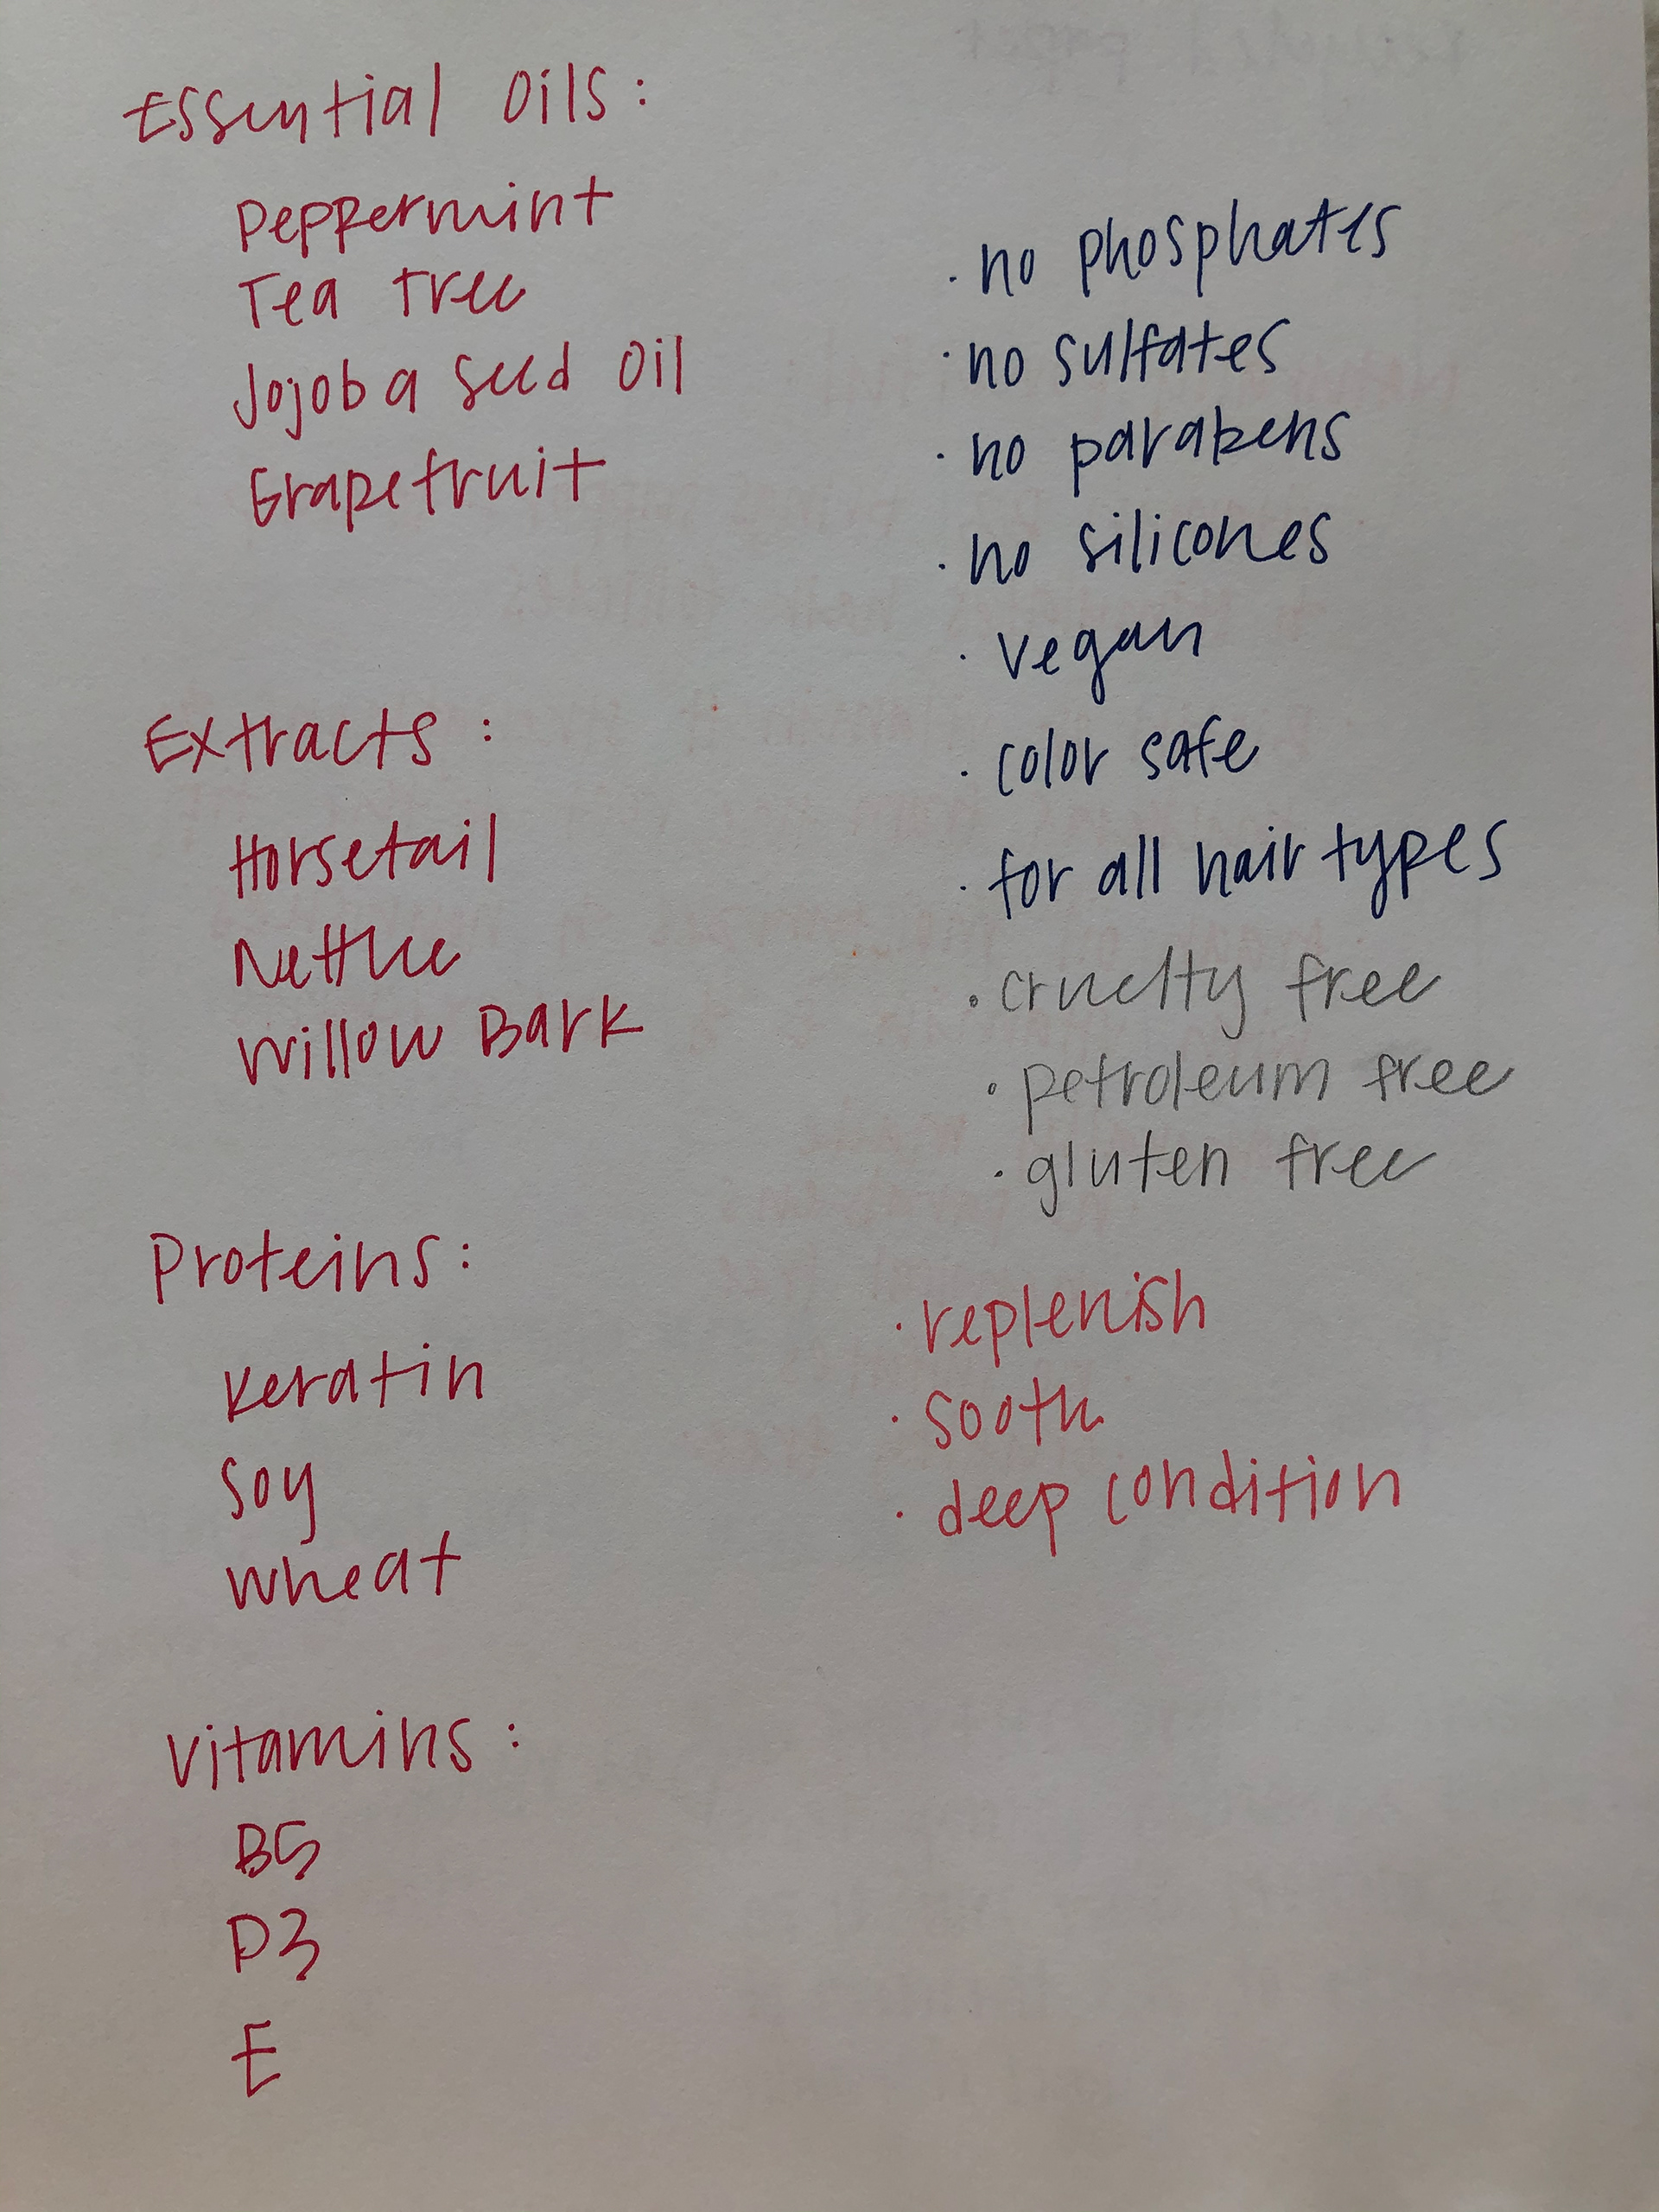 Essential Oils:
Peppermint
Tea Tree
Jojoba Seed Oil
Grapefruit
Extracts:
Horsetail
Nettle
Willow Bark
Proteins:
Keratin
Soy
Wheat
Vitamins:
B5
D3
E
· no phosphates
· no sulfates
· no parabens
· no silicones
· vegan
· color safe
· for all hair types
· cruelty free
· petroleum free
· gluten free
· replenish
· soothe
· deep condition